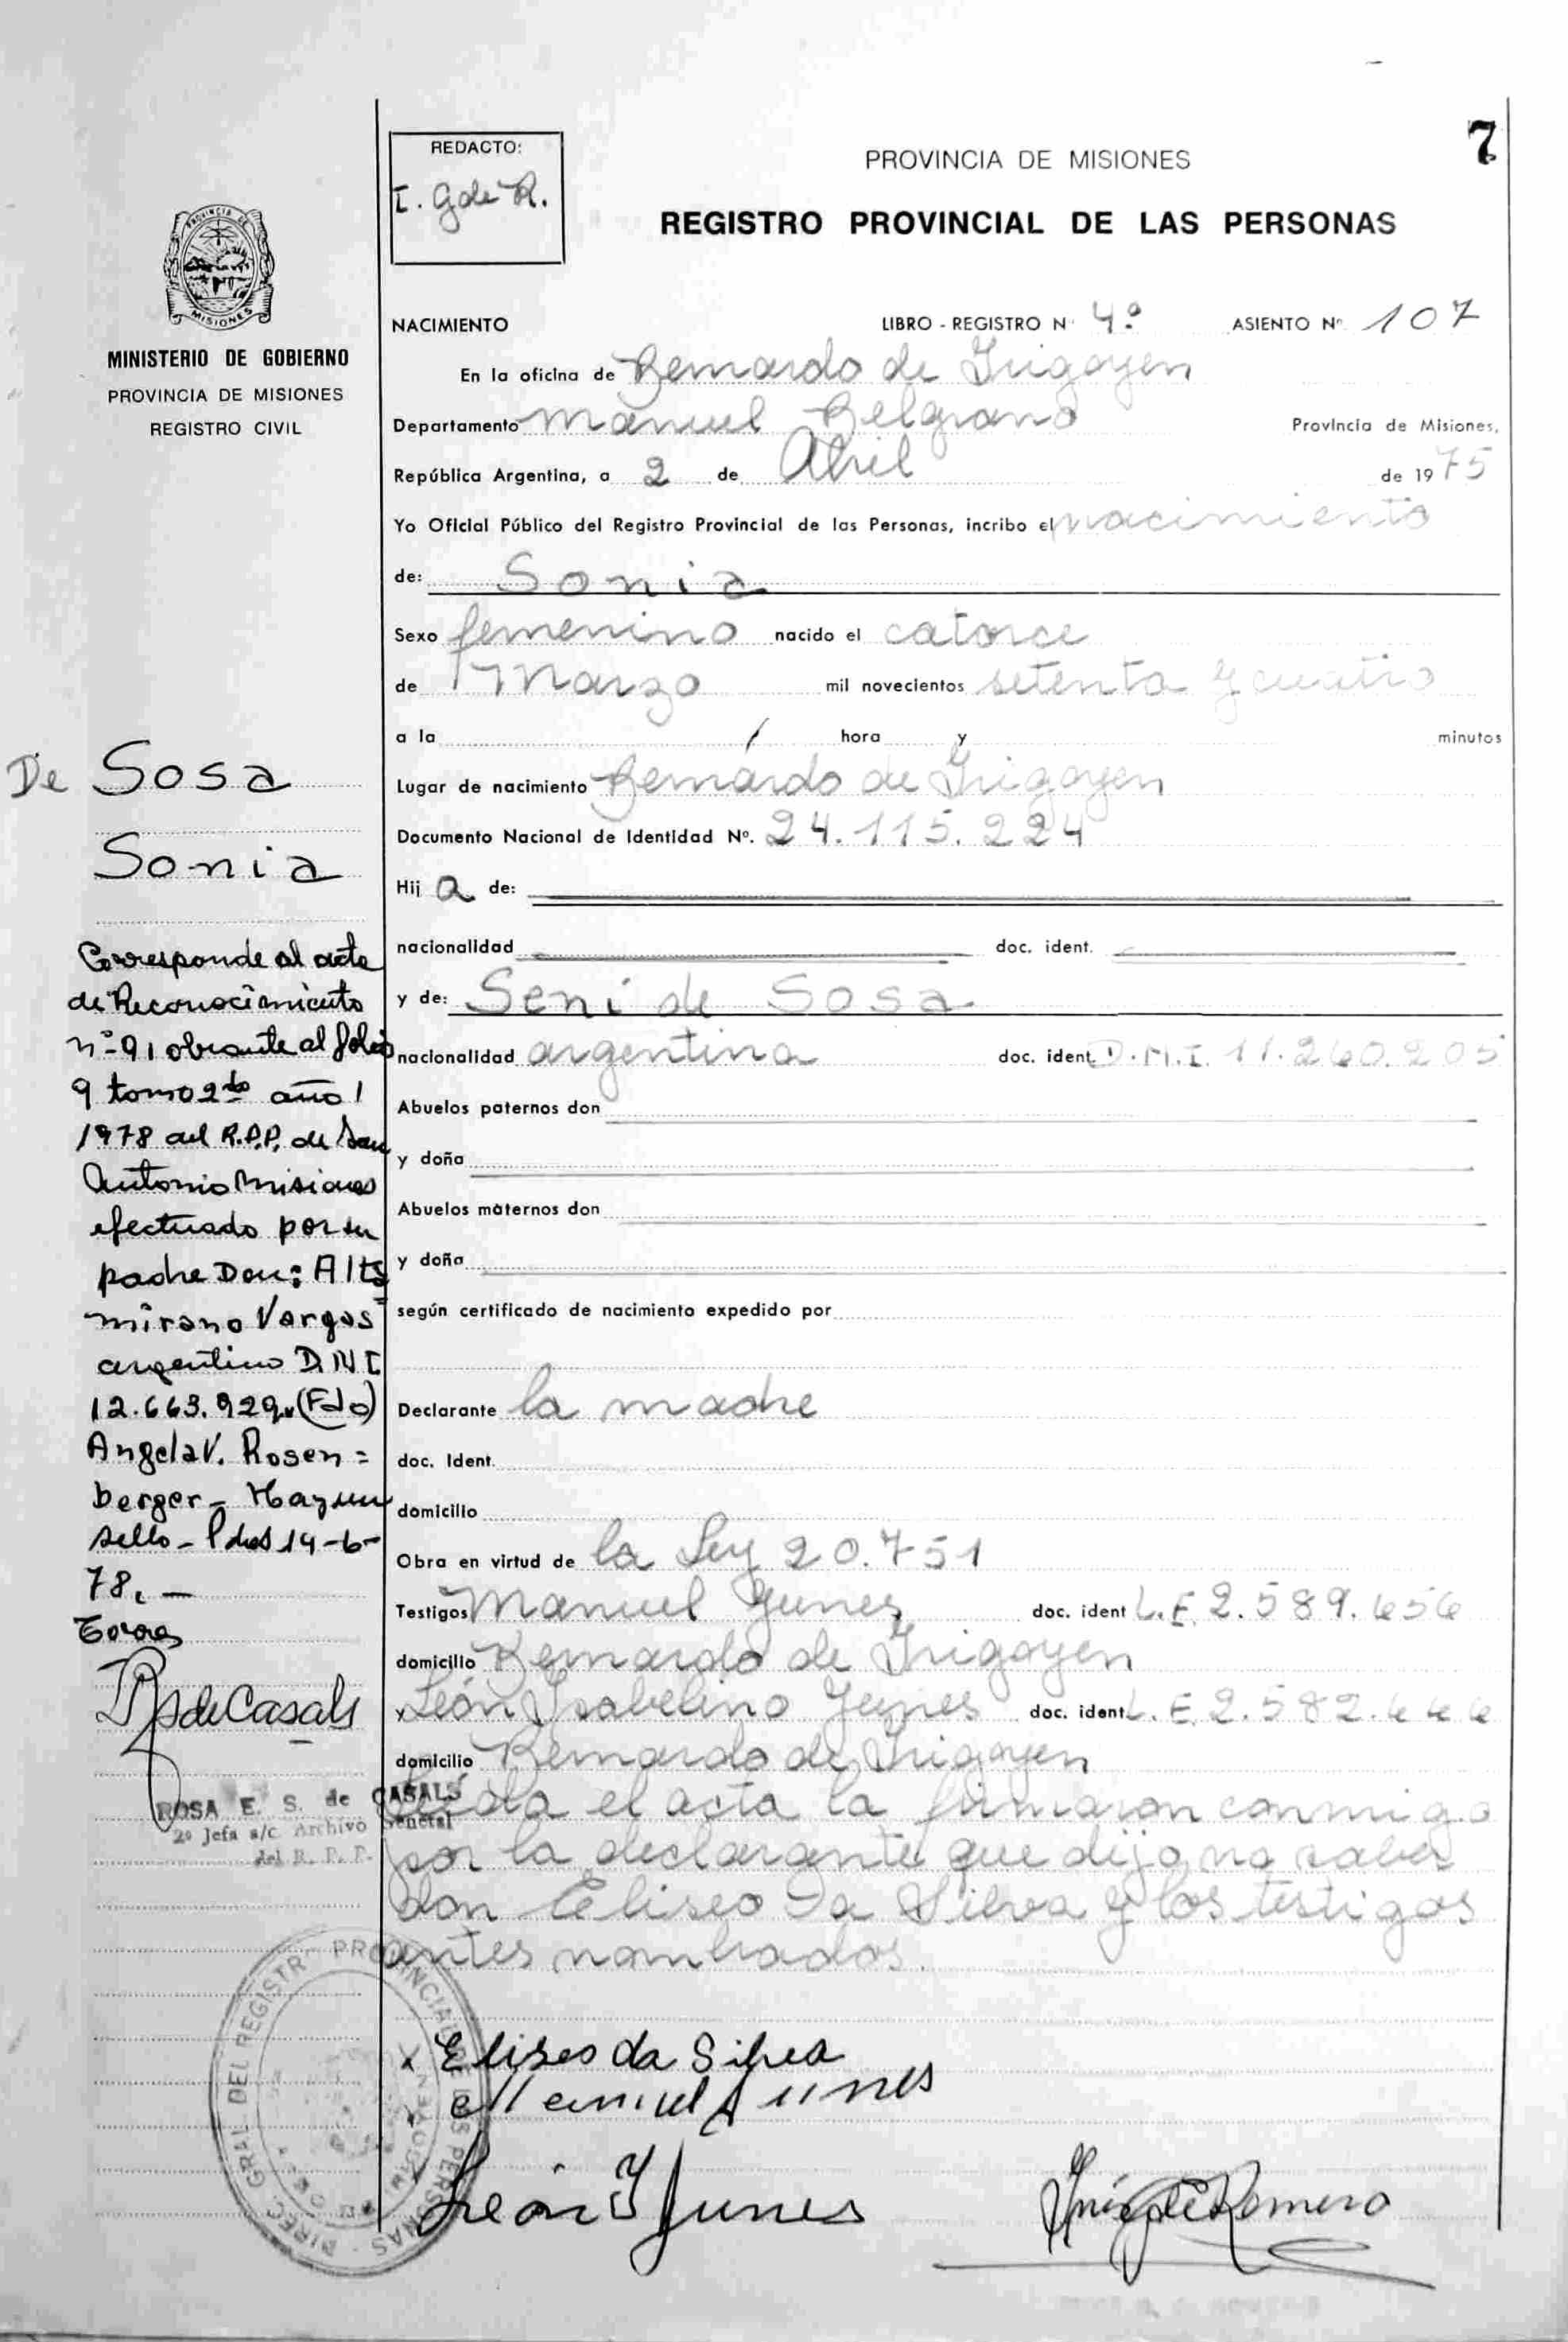 7
REDACTO:
I. G de R.
PROVINCIA DE MISIONES
REGISTRO PROVINCIAL DE LAS PERSONAS
PROVINCIA DE
MISIONES
MINISTERIO DE GOBIERNO
PROVINCIA DE MISIONES
REGISTRO CIVIL
NACIMIENTO LIBRO - REGISTRO N° 4° ASIENTO N° 107
En la oficina de Bernardo de Irigoyen
Departamento Manuel Belgrano Provincia de Misiones,
República Argentina, a 2 de Abril de 1975
Yo Oficial Público del Registro Provincial de las Personas, incribo el nacimiento
de: Sonia
Sexo femenino nacido el catorce
de Marzo mil novecientos setenta y cuatro
a la hora y minutos
Lugar de nacimiento Bernardo de Irigoyen
Documento Nacional de Identidad Nº. 24.115.224
Hij a de:
nacionalidad doc. ident.
y de: Seni de Sosa
nacionalidad argentina doc. ident. D.N.I. 11.260.205
Abuelos paternos don
y doña
Abuelos maternos don
y doña
según certificado de nacimiento expedido por
Declarante la madre
doc. Ident.
domicilio
Obra en virtud de la Ley 20.751
Testigos Manuel Yunes doc. ident L.E. 2.589.656
domicilio Bernardo de Irigoyen
y León Isabelino Yunes doc. ident. L.E. 2.582.666
domicilio Bernardo de Irigoyen
Leida el acta la firmaron conmigo
por la declarante que dijo no saber
don Eliseo Da Silva y los testigos
antes nombrados.
De Sosa
Sonia
Corresponde al acta
de Reconocimiento
nº 91 obrante al folio
9 tomo 2do año
1978 del R.P.P. de San
Antonio Misiones
efectuado por su
padre Don: Alta
mirano Vargas
argentino D.N.I
12.663.929 (Fdo)
Angela V. Rosen=
berger - Hay un
sello - Pdas 19-6-
78. —
Torres
R S de Casals
ROSA E. S. de CASALS
2º Jefa a/c. Archivo General
del R. P. P.
DIREC. GRAL DEL REGISTR PROVINCIAL DE LAS PERSONAS
x Eliseo da Silva
x Manuel Yunes
León Y Yunes
Inés G de Romero